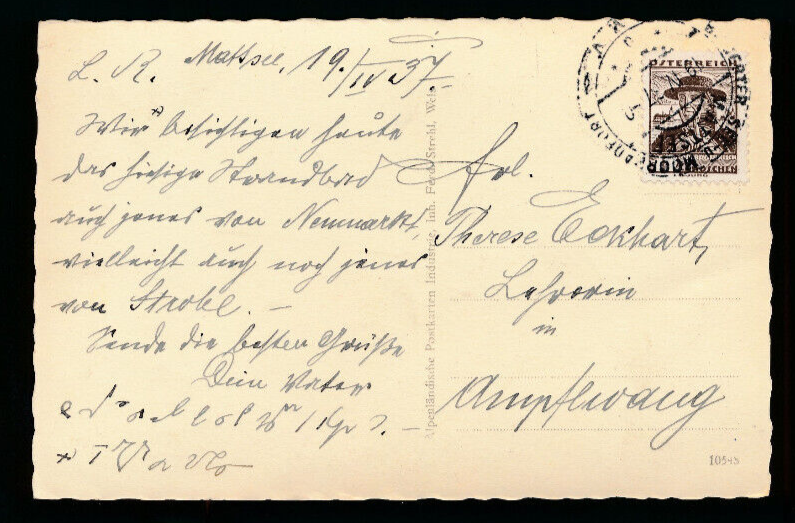 L. R. Mattsee, 19./IV 37.
Wir besichtigen heute
das hiesige Strandbad
auch jenes von Neumarkt,
vielleicht auch noch jenes
von Strobl. –
Sende die besten Grüße
Dein Vater
Frl.
Therese Eckhart,
Lehrerin
in
Ampflwang
Alpenländische Postkarten Industrie, Inh. Ferd. Strehl, Wels
ÖSTERREICH
GROSCHEN